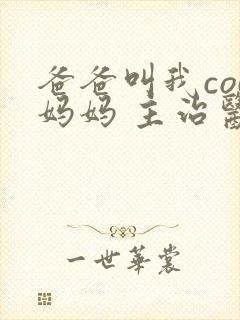 爸爸叫我co
妈妈 主治醫
一世華裳